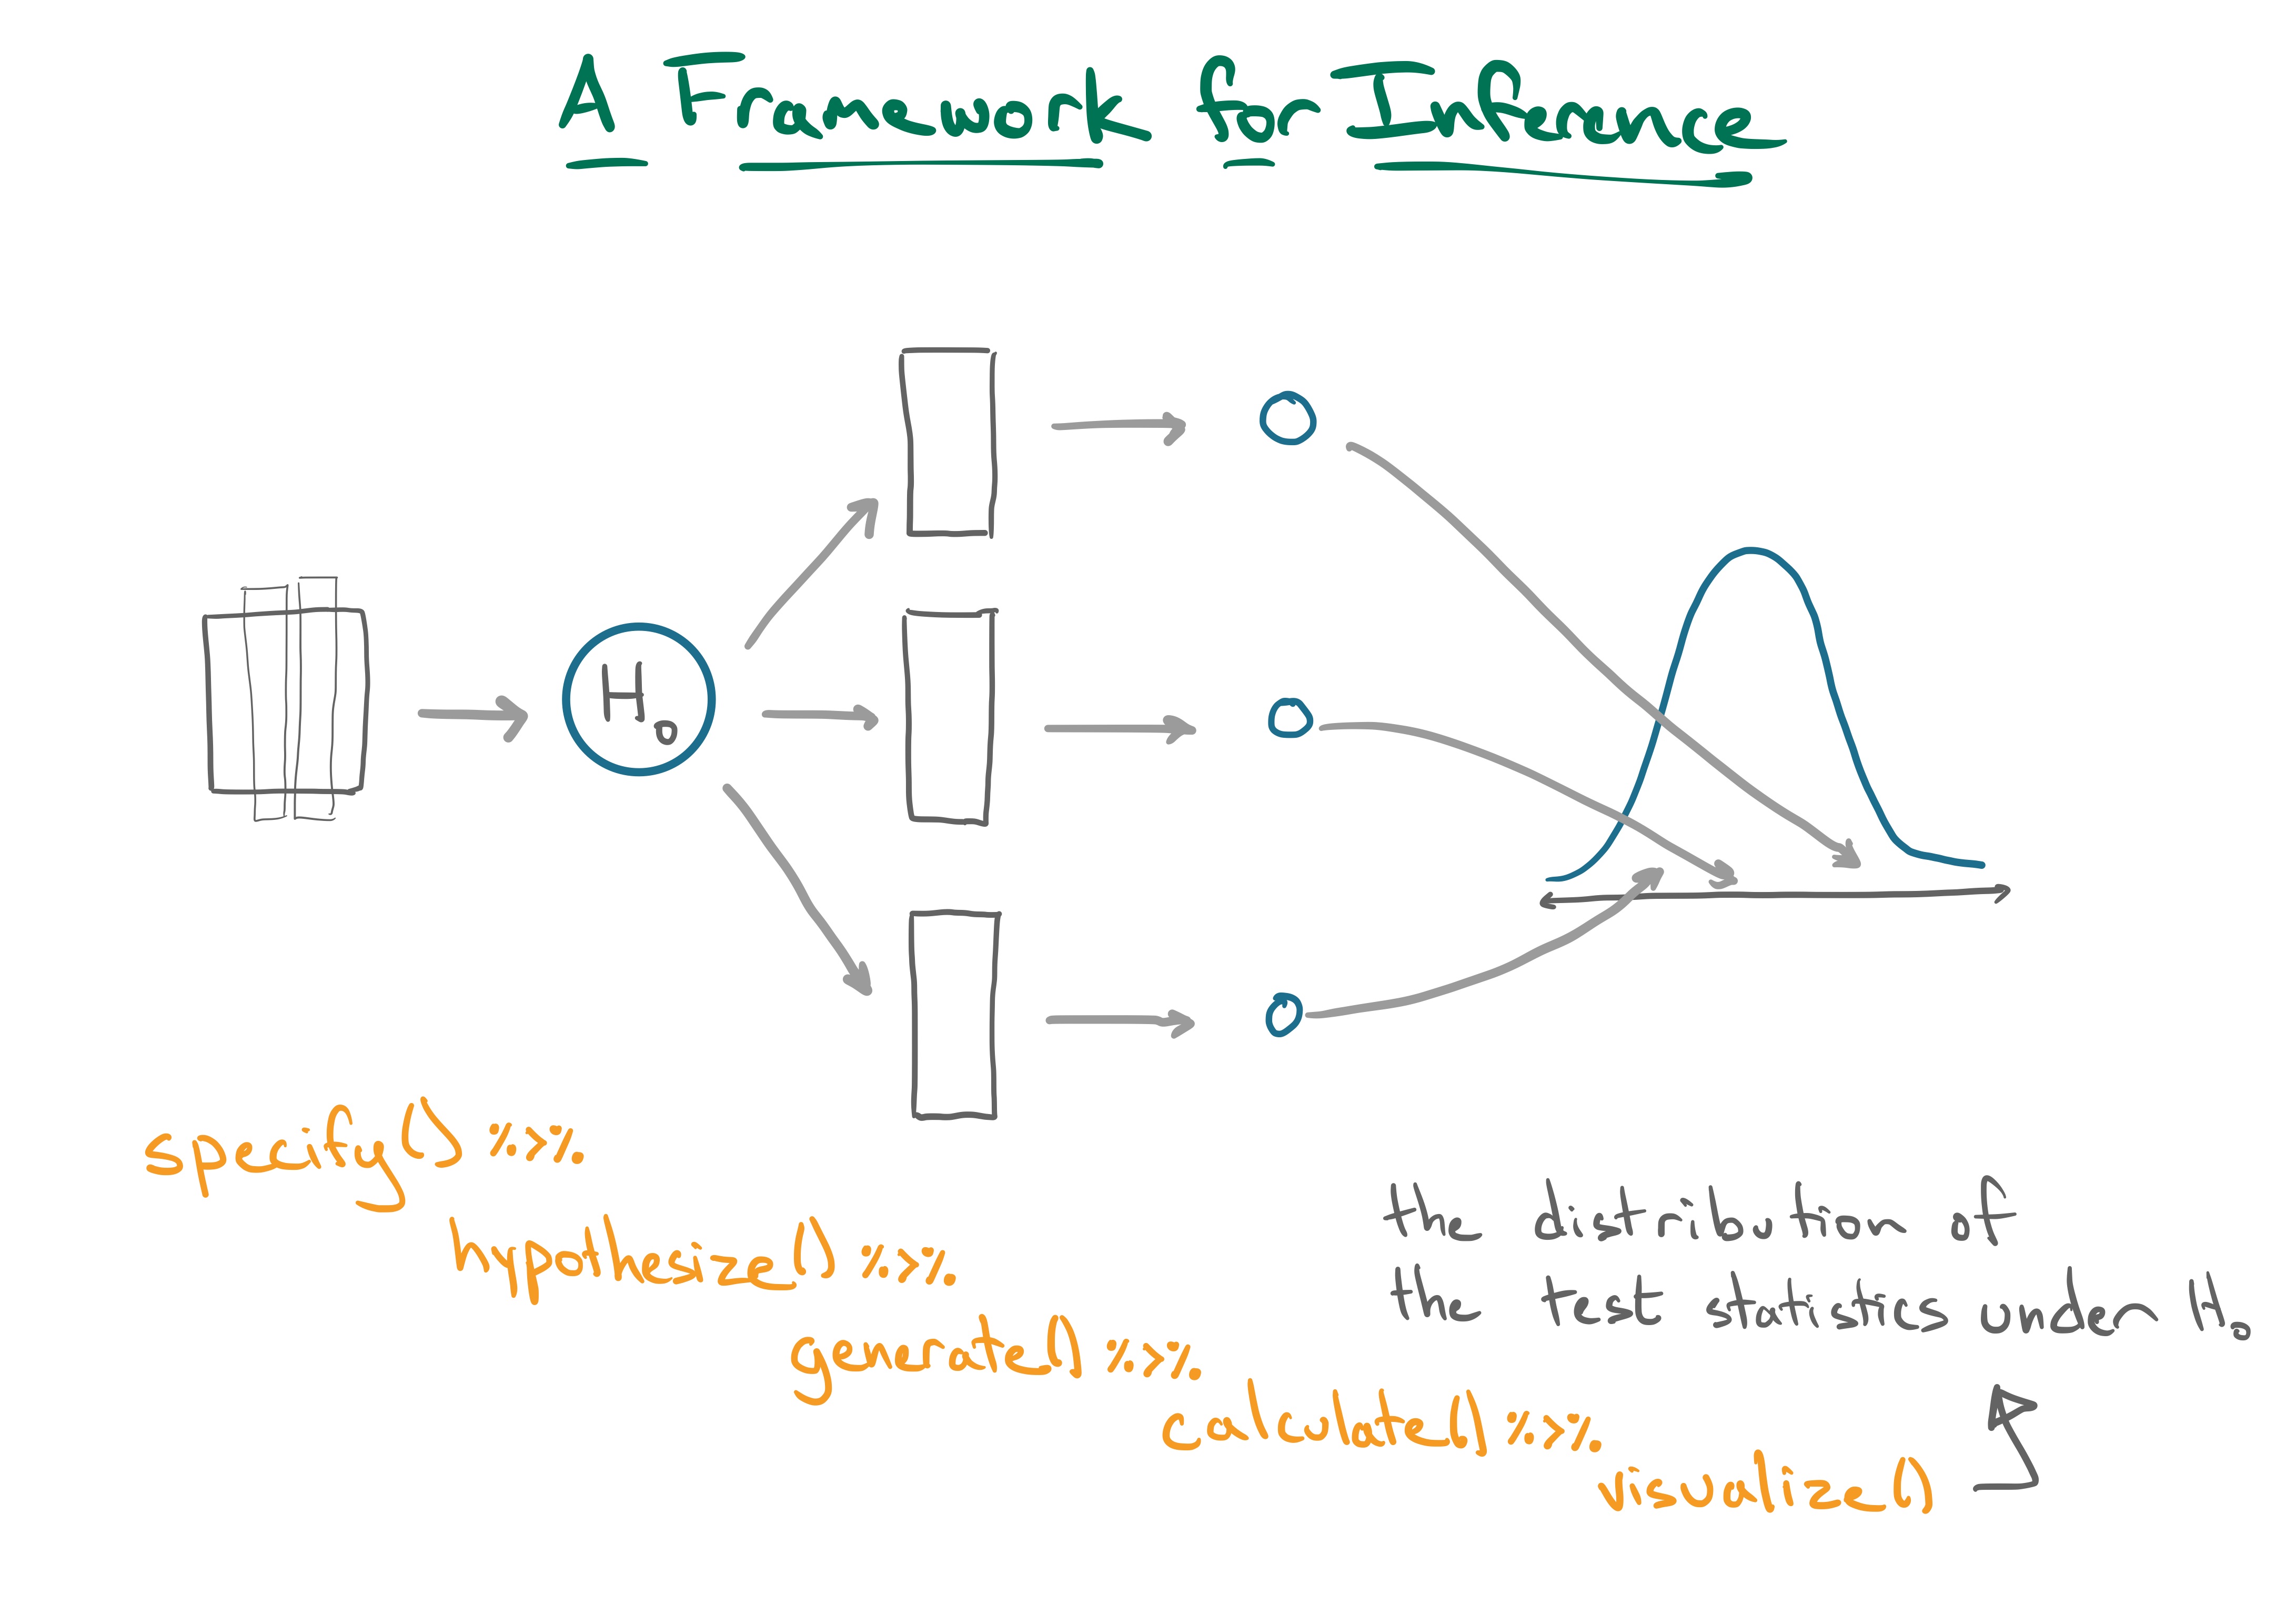 A Framework for Inference
H₀
specify() %>%
hypothesize() %>%
generate() %>%
calculate() %>%
visualize()
the distribution of
the test statistics under H₀